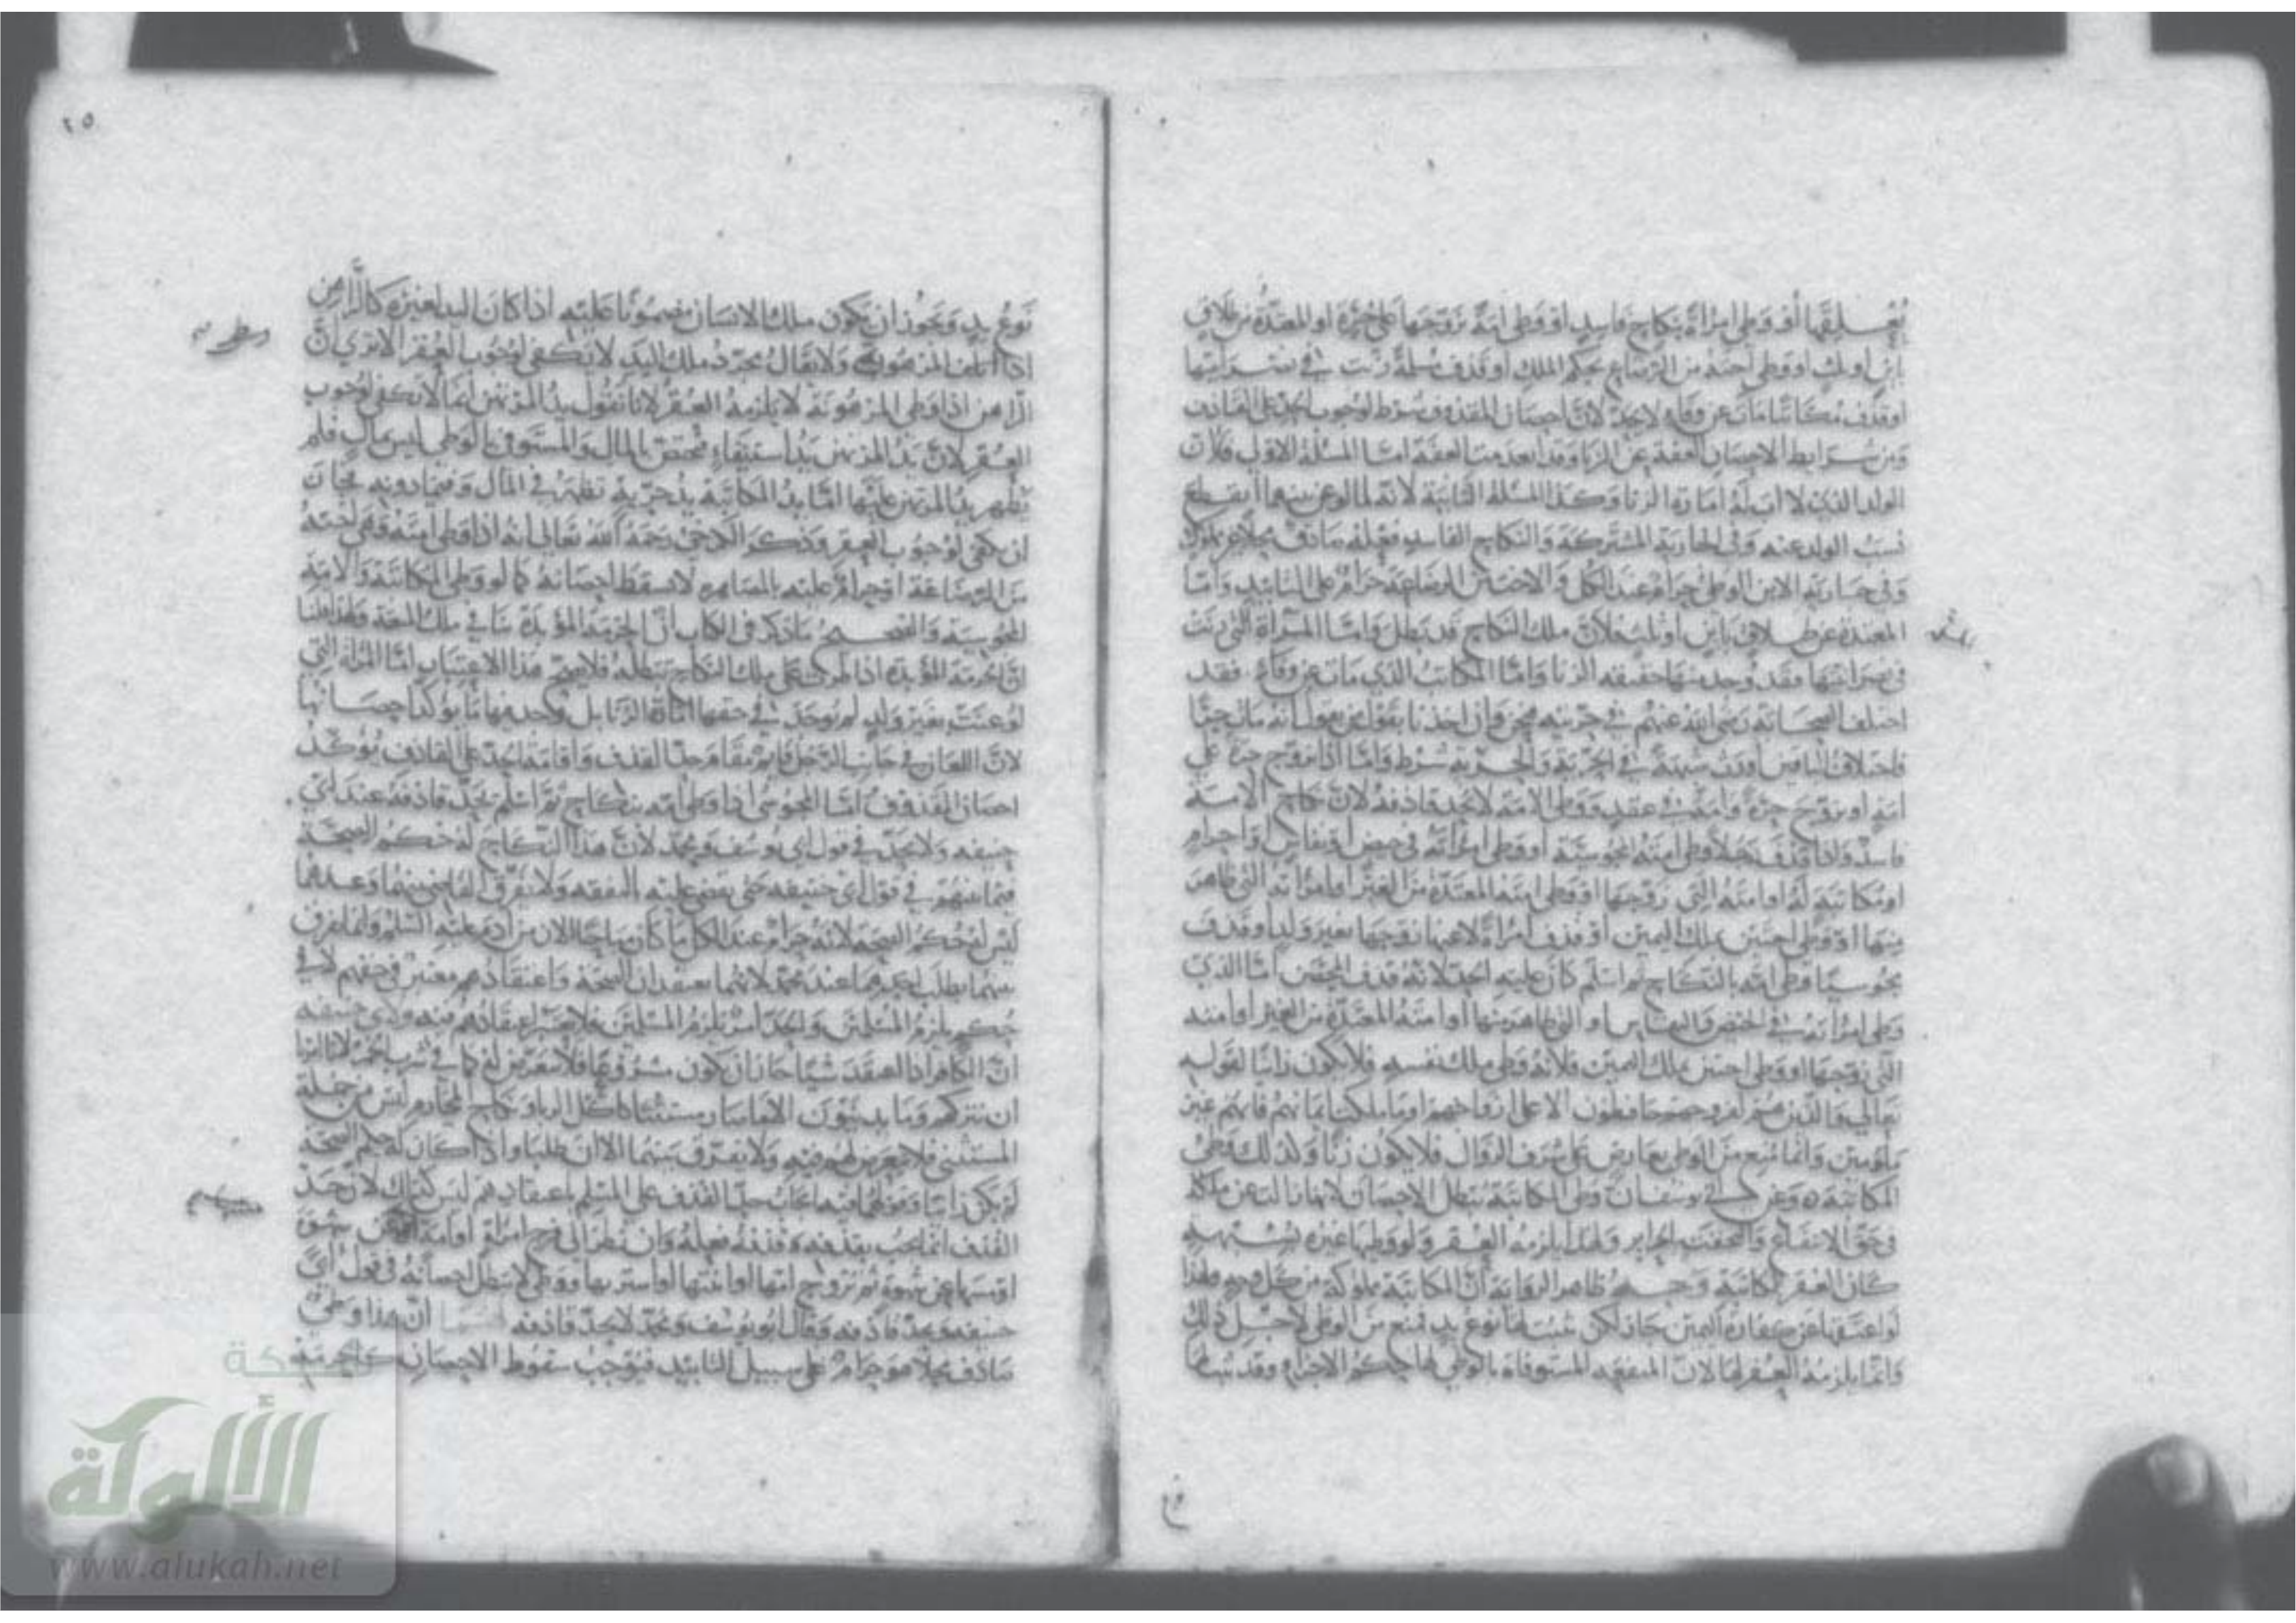 يُعْلِقها أو وطى امرأةً بنكاح فاسد أو وطى امةً تزوّجها على حُرّة او المعتدّة من طلاق
باين او ثلث او وطى اخته من الرضاع بحكم الملك او قذف مسلمةً زنت في نصرانيتها
او قذف مكاتبا مات عن وفاء لا يحدّ لانّ احصان المقذوف شرط لوجوب الحدّ على القاذف
ومن شرايط الاحصان العفّة عن الزنا وقد انعدمت العفة امّا المسئلة الاولى فلان
الولد الذي لا اب له امارة الزنا وكذا المسئلة الثانية لانه لما لوعن بينهما انقطع
نسب الولد عنه وفي الجارية المشتركة والنكاح الفاسد فعله صادف محلا غير مملوك
وفي جارية الابن الوطئ حرام عند الكل والاخت من الرضاعة حرام على التابيد وامّا
المعتدة عن طلاق باين او ثلث فلانّ ملك النكاح قد بطل وامّا المرأة التي زنت
في نصرانيتها فقد وجد منها حقيقة الزنا وامّا المكاتب الذي مات عن وفاء فقد
اختلف الصحابة رضي الله عنهم في حرّيته فنحن وان اخذنا بقول من يقول انه مات حرّا
فاختلاف الناس اورث شبهةً في الحرّية والحرّية شرط وامّا اذا تزوّج حرّة على
امةٍ او تزوّج حرّةً وامةً في عقد ووطى الامة لا يحد قاذفه لانّ نكاح الامة
فاسد واذا قذف رجلا وطى امته المجوسيّة او وطى امرأته في حيض او نفاس او احرام
او مكاتبة له او امته التي زوّجها او وطى امته المعتدّة من الغير او امرأته التي ظاهر
منها او وطى اختين بملك اليمين او قذف امرأةً لاعنها زوجها بغير ولد او قذف
مجوسيّا وطى امّه بالنكاح ثم اسلم كان عليه الحدّ لانّه قذف المحصن امّا الذي
وطى امرأته في الحيض والنفاس او التي ظاهر منها او امته المعتدّة من الغير او امته
التي زوّجها او وطى اختين بملك اليمين فلانّه وطى ملك نفسه فلا يكون زانيا لقوله
تعالى والذين هم لفروجهم حافظون الا على ازواجهم او ما ملكت ايمانهم فانهم غير
ملومين وانّما مُنع من الوطى بعارض على شرف الزوال فلا يكون زنًا وكذلك وطى
المكاتبة وعن ابي يوسف انّ وطى المكاتبة يبطل الاحصان لانها زالت عن ملكه
في حق الانتفاع والتحقت بالحراير ولهذا يلزمه العقر ولو وطيها غيره بشبهة
كان العقر للمكاتبة وجه ظاهر الرواية انّ المكاتبة مملوكة من كل وجه ولهذا
لو اعتقها عن كفارة اليمين جاز لكن ثبت لها نوع يد فمنع من الوطى لاجل ذلك
وانّما يلزمه العقر لها لانّ المنفعة المستوفاة بالوطى لها حكم الاجزاء وقد ثبت لها
فع
٢٥
نوع يد ويجوز ان يكون ملك الانسان مضمونا عليه اذا كان اليد لغيره كالراهن
اذا اتلف المرهون ولا يقال مجرّد ملك اليد لا يكفى لوجوب العقر الا ترى انّ
الراهن اذا وطى المرهونة لا يلزمه العقر لانا نقول يد المرتهن انما لا يكفى لوجوب
العقر لانّ يد المرتهن يد استيفاء مختصّ بالمال والمستوفى بالوطى ليس بمال فلم
يظهر يد المرتهن عليها امّا يد المكاتبة يد حرّية تظهر في المال وفيما دونه فجاز
ان يكفى لوجوب العقر وذكر الكرخي رحمه الله تعالى انه اذا وطى امته وهي اخته
من الرضاعة او حرام عليه بالمصاهرة لا يسقط احصانه كما لو وطى المكاتبة والامة
المجوسيّة والصحيح ما ذكر في الكتاب انّ الحرمة المؤبدة تنافي ملك المتعة ولهذا قلنا
انّ الحرمة المؤبدة اذا طرأت على ملك النكاح تبطله فلا يصح هذا الاعتبار امّا المرأة التي
لوعنت بغير ولد لم يوجد في حقها امارة الزنا بل وُجد منها ما يؤكد احصانها
لانّ اللعان في جانب الرجل قايم مقام حدّ القذف واقامة الحدّ على القاذف يؤكّد
احصان المقذوف امّا المجوسي اذا وطى امّه بنكاح ثم اسلم يحدّ قاذفه عند ابي
حنيفة ولا يحدّ في قول ابي يوسف ومحمّد لانّ هذا النكاح له حكم الصحّة
فيما بينهم في قول ابي حنيفة حتى يقضى عليه بالنفقة ولا يفرّق القاضي بينهما وعندهما
ليس له حكم الصحة لانه حرام عند الكل ما كان مباحًا الا لان من آدم عليه السلم وانما يفرق
بينهما بطلب احدهما عند محمّد لانهما يعتقدان الصحّة واعتقادهم معتبر في حقهم لا في
حكم يلزم المسلمين والحدّ امر يلزم المسلمين فلا يعتبر اعتقادهم فيه ولابي حنيفة
انّ الكافر اذا اعتقد شيئا جاز ان يكون مشروعا فلا نتعرّض له كما في شرب الخمر لانا امرنا
ان نتركهم وما يدينون الا فيما صار مستثنى كأكل الربا ونكاح المحارم ليس من جملة
المستثنى فلا يتعرض لهم فيه ولا يفرّق بينهما الا ان يطلبا واذا كان له حكم الصحّة
لم يكن زانيا وقولهما فيه ايجاب حدّ القذف على المسلم باعتقادهم ليس كذلك لانّ حدّ
القذف انما يجب بقذفه وقذفه فعله وان نظر الى فرج امرأةٍ او امة عن شهوة
او مسّها عن شهوة ثم تزوّج امّها او ابنتها او اشتريها ووطى لا يبطل احصانه في قول ابي
حنيفة ويحدّ قاذفه وقال ابو يوسف ومحمّد لا يحدّ قاذفه انّ هذا وطى
صادف محلا هو حرام على سبيل التابيد فيوجب سقوط الاحصان
الألوكة
www.alukah.net